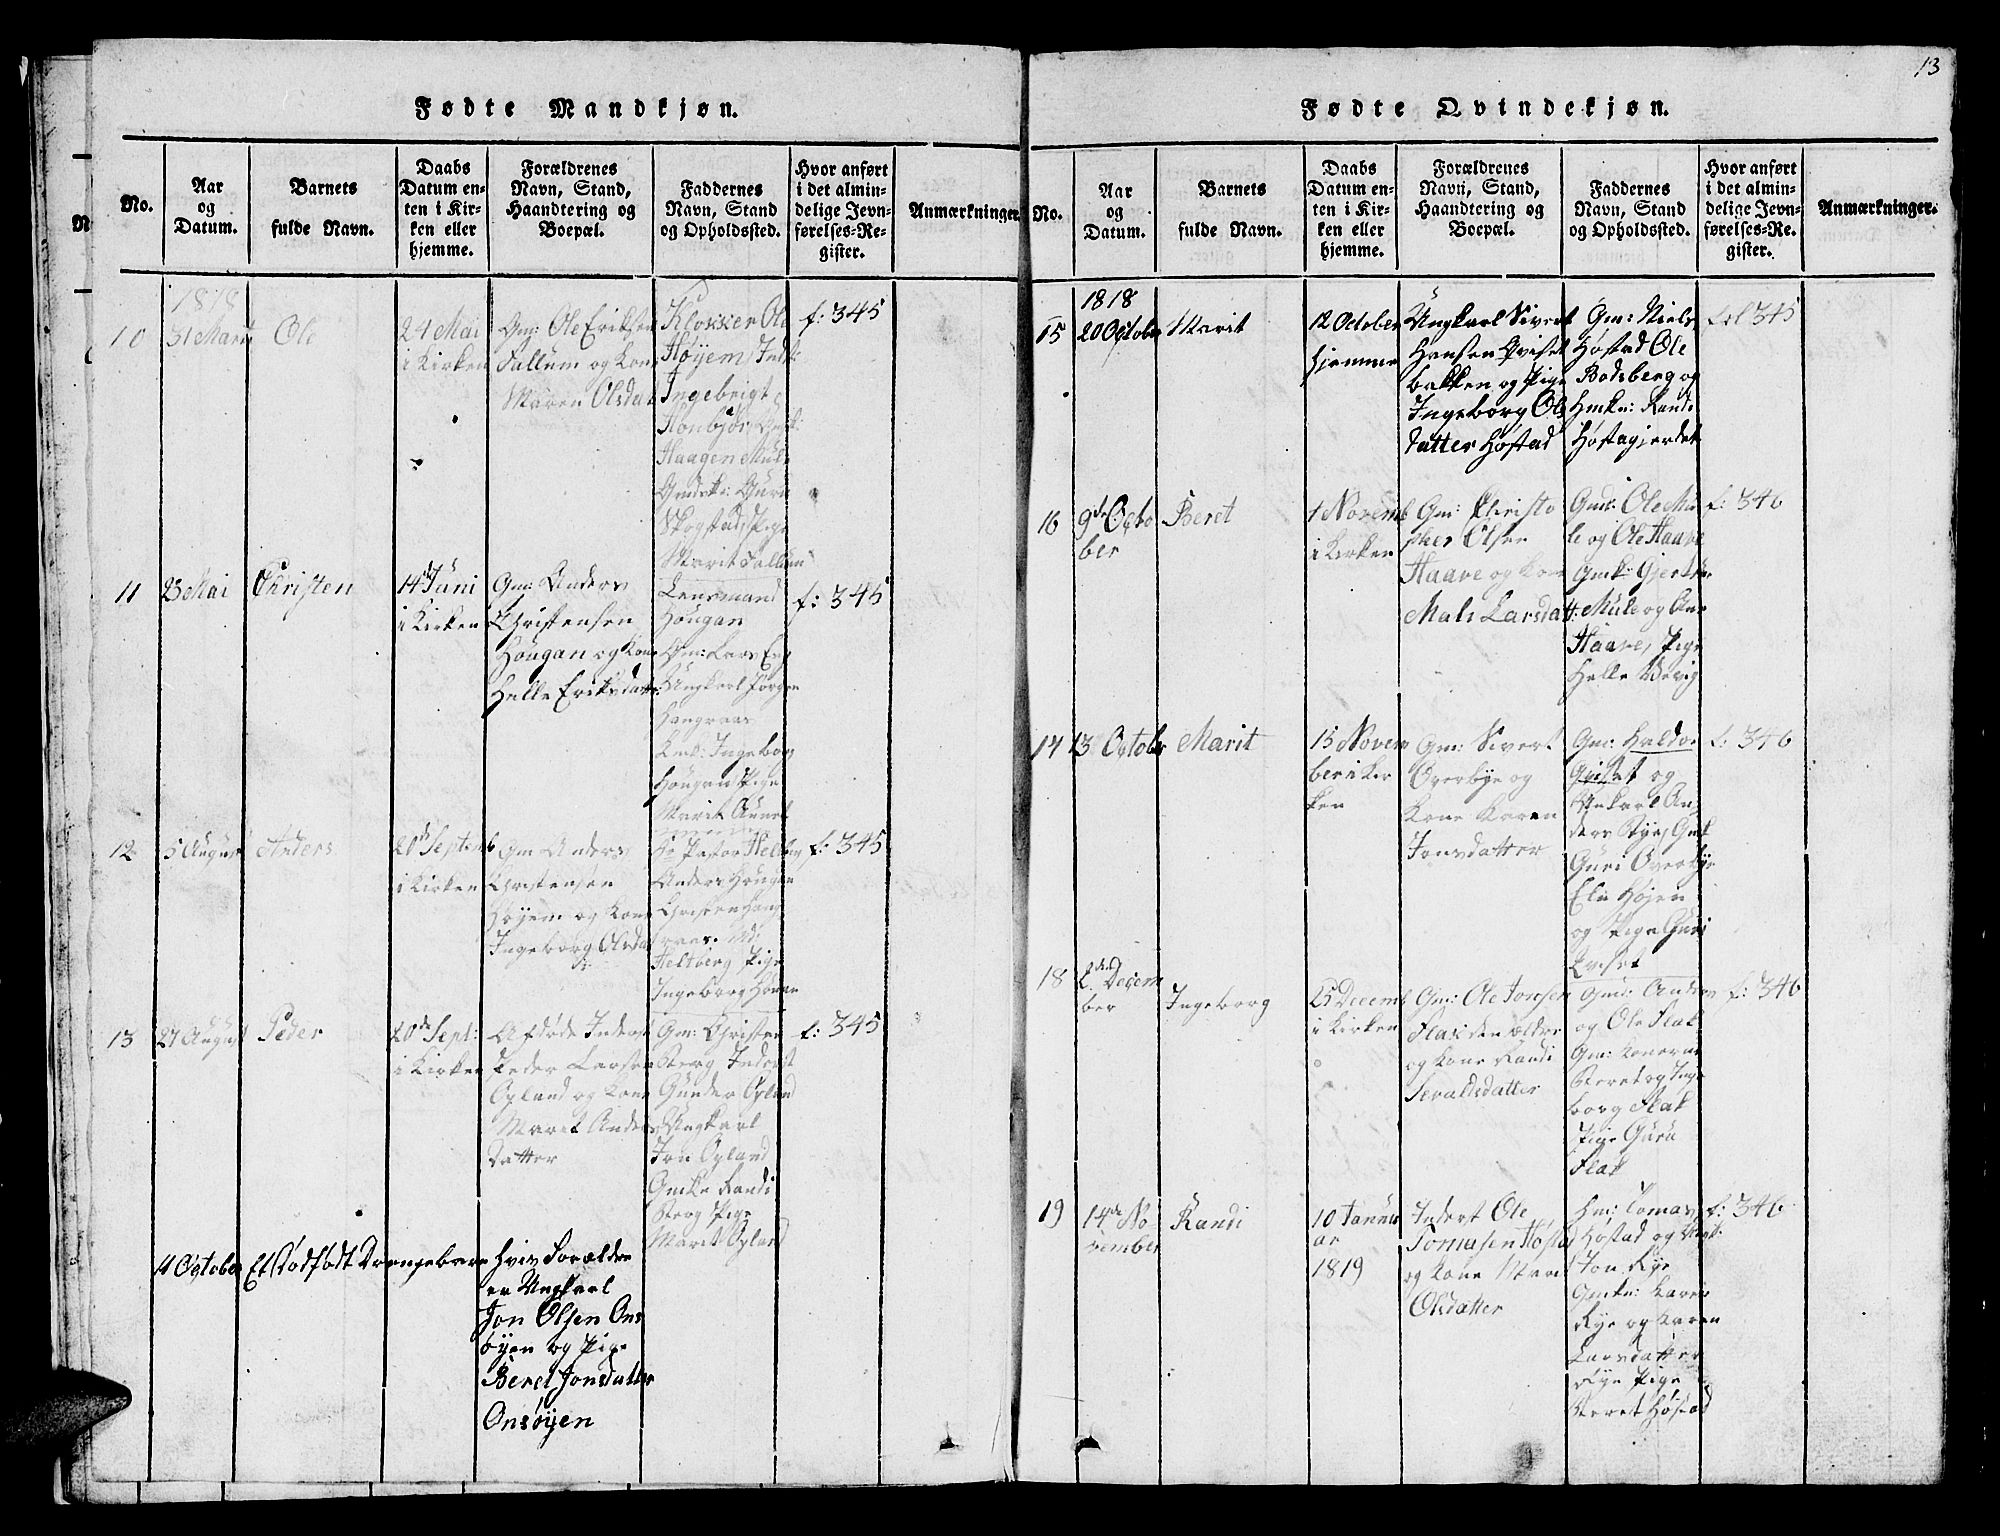 13
Fødte Mandkjøn.
No.
Aar
og
Datum.
Barnets
fulde Navn.
Daabs
Datum en-
ten i Kir-
ken eller
hjemme.
Forældrenes
Navn, Stand,
Haandtering og
Boepæl.
Faddernes
Navn, Stand
og Opholdssted.
Hvor anført
i det almin-
delige Jevn-
førelses-Re-
gister.
Anmærkninger.
1818
10
31 Marti
Ole
24 Mai
i Kirken
Gm: Ole Eriksen
Fallum og Kone
Maren Olsdat
Klokker Ole
Høyem, Inds:
Ingebrigt
Haagen
Guri
Skogstad, Pige
Marit Fallum
f: 345
11
23 Mai
Christen
14 Juni
i Kirken
Gm: Anders
Christensen
Hougan og Kone
Helle Eriksdatter
Lensmand
Hougan
Gm: Lars
Ungkarl Jørgen
Hangraas
Ingeborg
Hougan Pige
Marit Aunet
f: 345
12
5 August
Anders
20de Septemb
i Kirken
Gm Anders
Christensen
Høyem og Kone
Ingeborg Olsda
Pastor Heltberg
Anders Hougan
Christen Hang
raas.
Heltberg Pige
Ingeborg
f: 345
13
27 August
Peder
20de Sept:
i Kirken
Afdøde Inderst
Peder Larsen
Øyland og Kone
Maret Anders
Datter
Gm: Christen
Berg Inderst
Gunder Øyland
Ungkarl
Jon Øyland
Gmke Randi
Berg Pige
Marit Øyland
f: 345
11 October
Et Dødfødt Drengebarn
hvis Forældre
er Ungkarl
Jon Olsen Ons
øyen og Pige
Beret Jonsdatter
Onsøyen
Fødte Qvindekjøn.
No.
Aar
og
Datum.
Barnets
fulde Navn.
Daabs
Datum en-
ten i Kir-
ken eller
hjemme.
Forældrenes
Navn, Stand,
Haandtering og
Boepæl.
Faddernes
Navn, Stand
og Opholdssted.
Hvor anført
i det almin-
delige Jevn-
førelses-Re-
gister.
Anmærkninger.
1818
15
20 October
Marit
12 October
hjemme
Ungkarl Sivert
Hansen Qviset
bakken og Pige
Ingeborg Ols
datter Høstad
Gm: Niels
Høstad Ole
Bodsberg og
Hmkn: Randi
Høstagjerdet
fol 345
16
9de Octo
ber
Beret
1 Novemb
i Kirken
Gm: Christo
pher Olsen
Haave og Kone
Mali Larsdatt:
Gmd: Ole Mu
le og Ole Haave
Gmk: Gjertru
Mule og Ane
Haave, Pige
Helle
f: 346
17
13 October
Marit
15 Novem
ber i Kir
ken
Gm: Sivert
Overbye og
Kone Karen
Jonsdatter
Gm: Haldor
Qviset og
Unkarl An
ders Bye, Gmk
Guri Overbye
Eli Højem
og Pige Guri
Qviset
f: 346
18
2den Decem
ber
Ingeborg
25 Decemb
i Kirken
Gm: Ole Jonsen
Flak den ældre
og Kone Randi
Sevaldsdatter
Gmd: Anders
og Ole Flak
Gm: Konerne
Beret og Inge
borg Flak
Pige Guru
Flak
f: 346
19
14de No
vember
Randi
10 Janu
ar
1819
Inderst Ole
Tomasen Høstad
og Kone Marit
Olsdatter
Hm: Tomas
Høstad og Ungk:
Jon Rye
Gmkn: Karen
Rye og Karen
Larsdatter
Rye Pige
Beret Høstad
f: 346